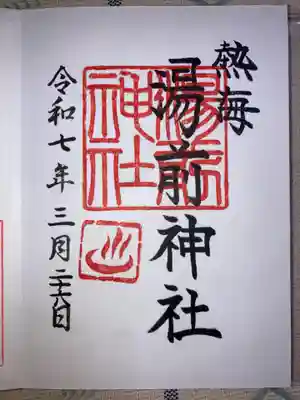 熱海
湯前神社
湯前
神社
令和七年三月二十六日